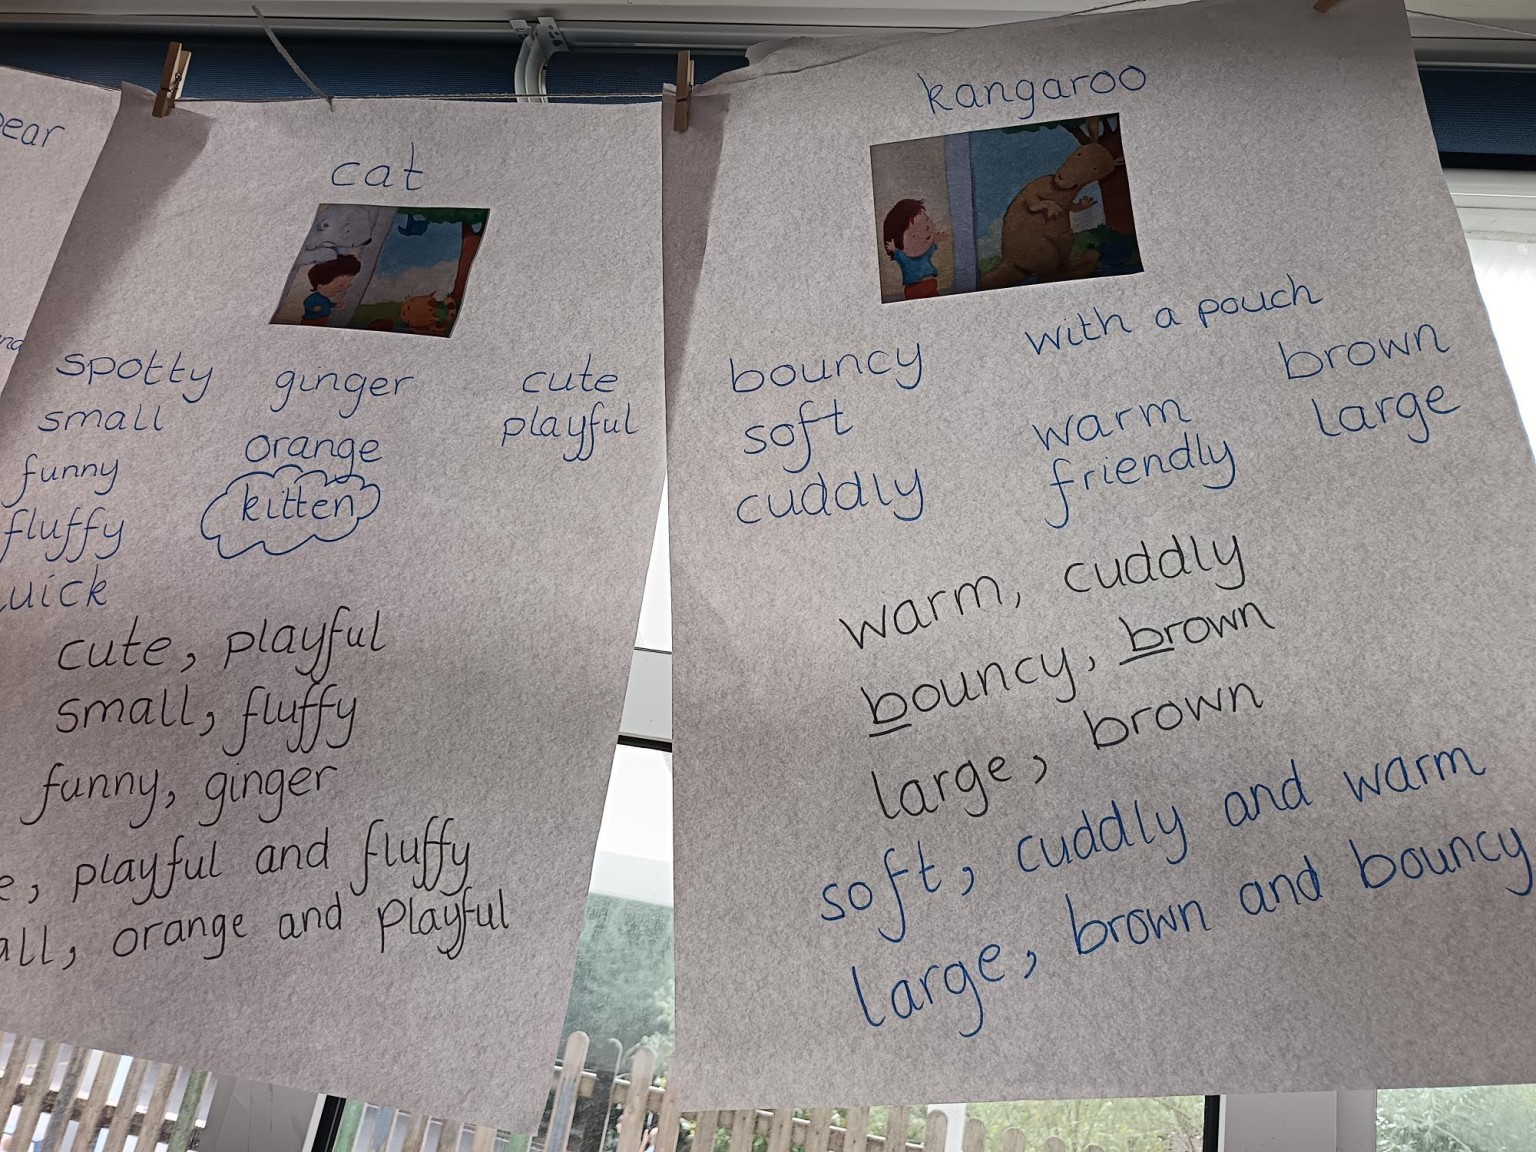 cat
spotty ginger cute
small orange playful
funny kitten
fluffy
cute, playful
small, fluffy
funny, ginger
playful and fluffy
orange and playful
kangaroo
with a pouch
bouncy brown
soft warm large
cuddly friendly
warm, cuddly
bouncy, brown
large, brown
soft, cuddly and warm
large, brown and bouncy